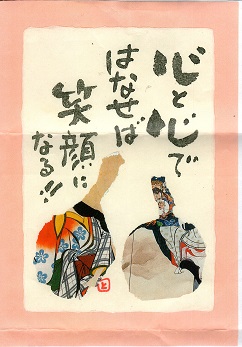 心と心で
はなせば
笑顔に
なる!!